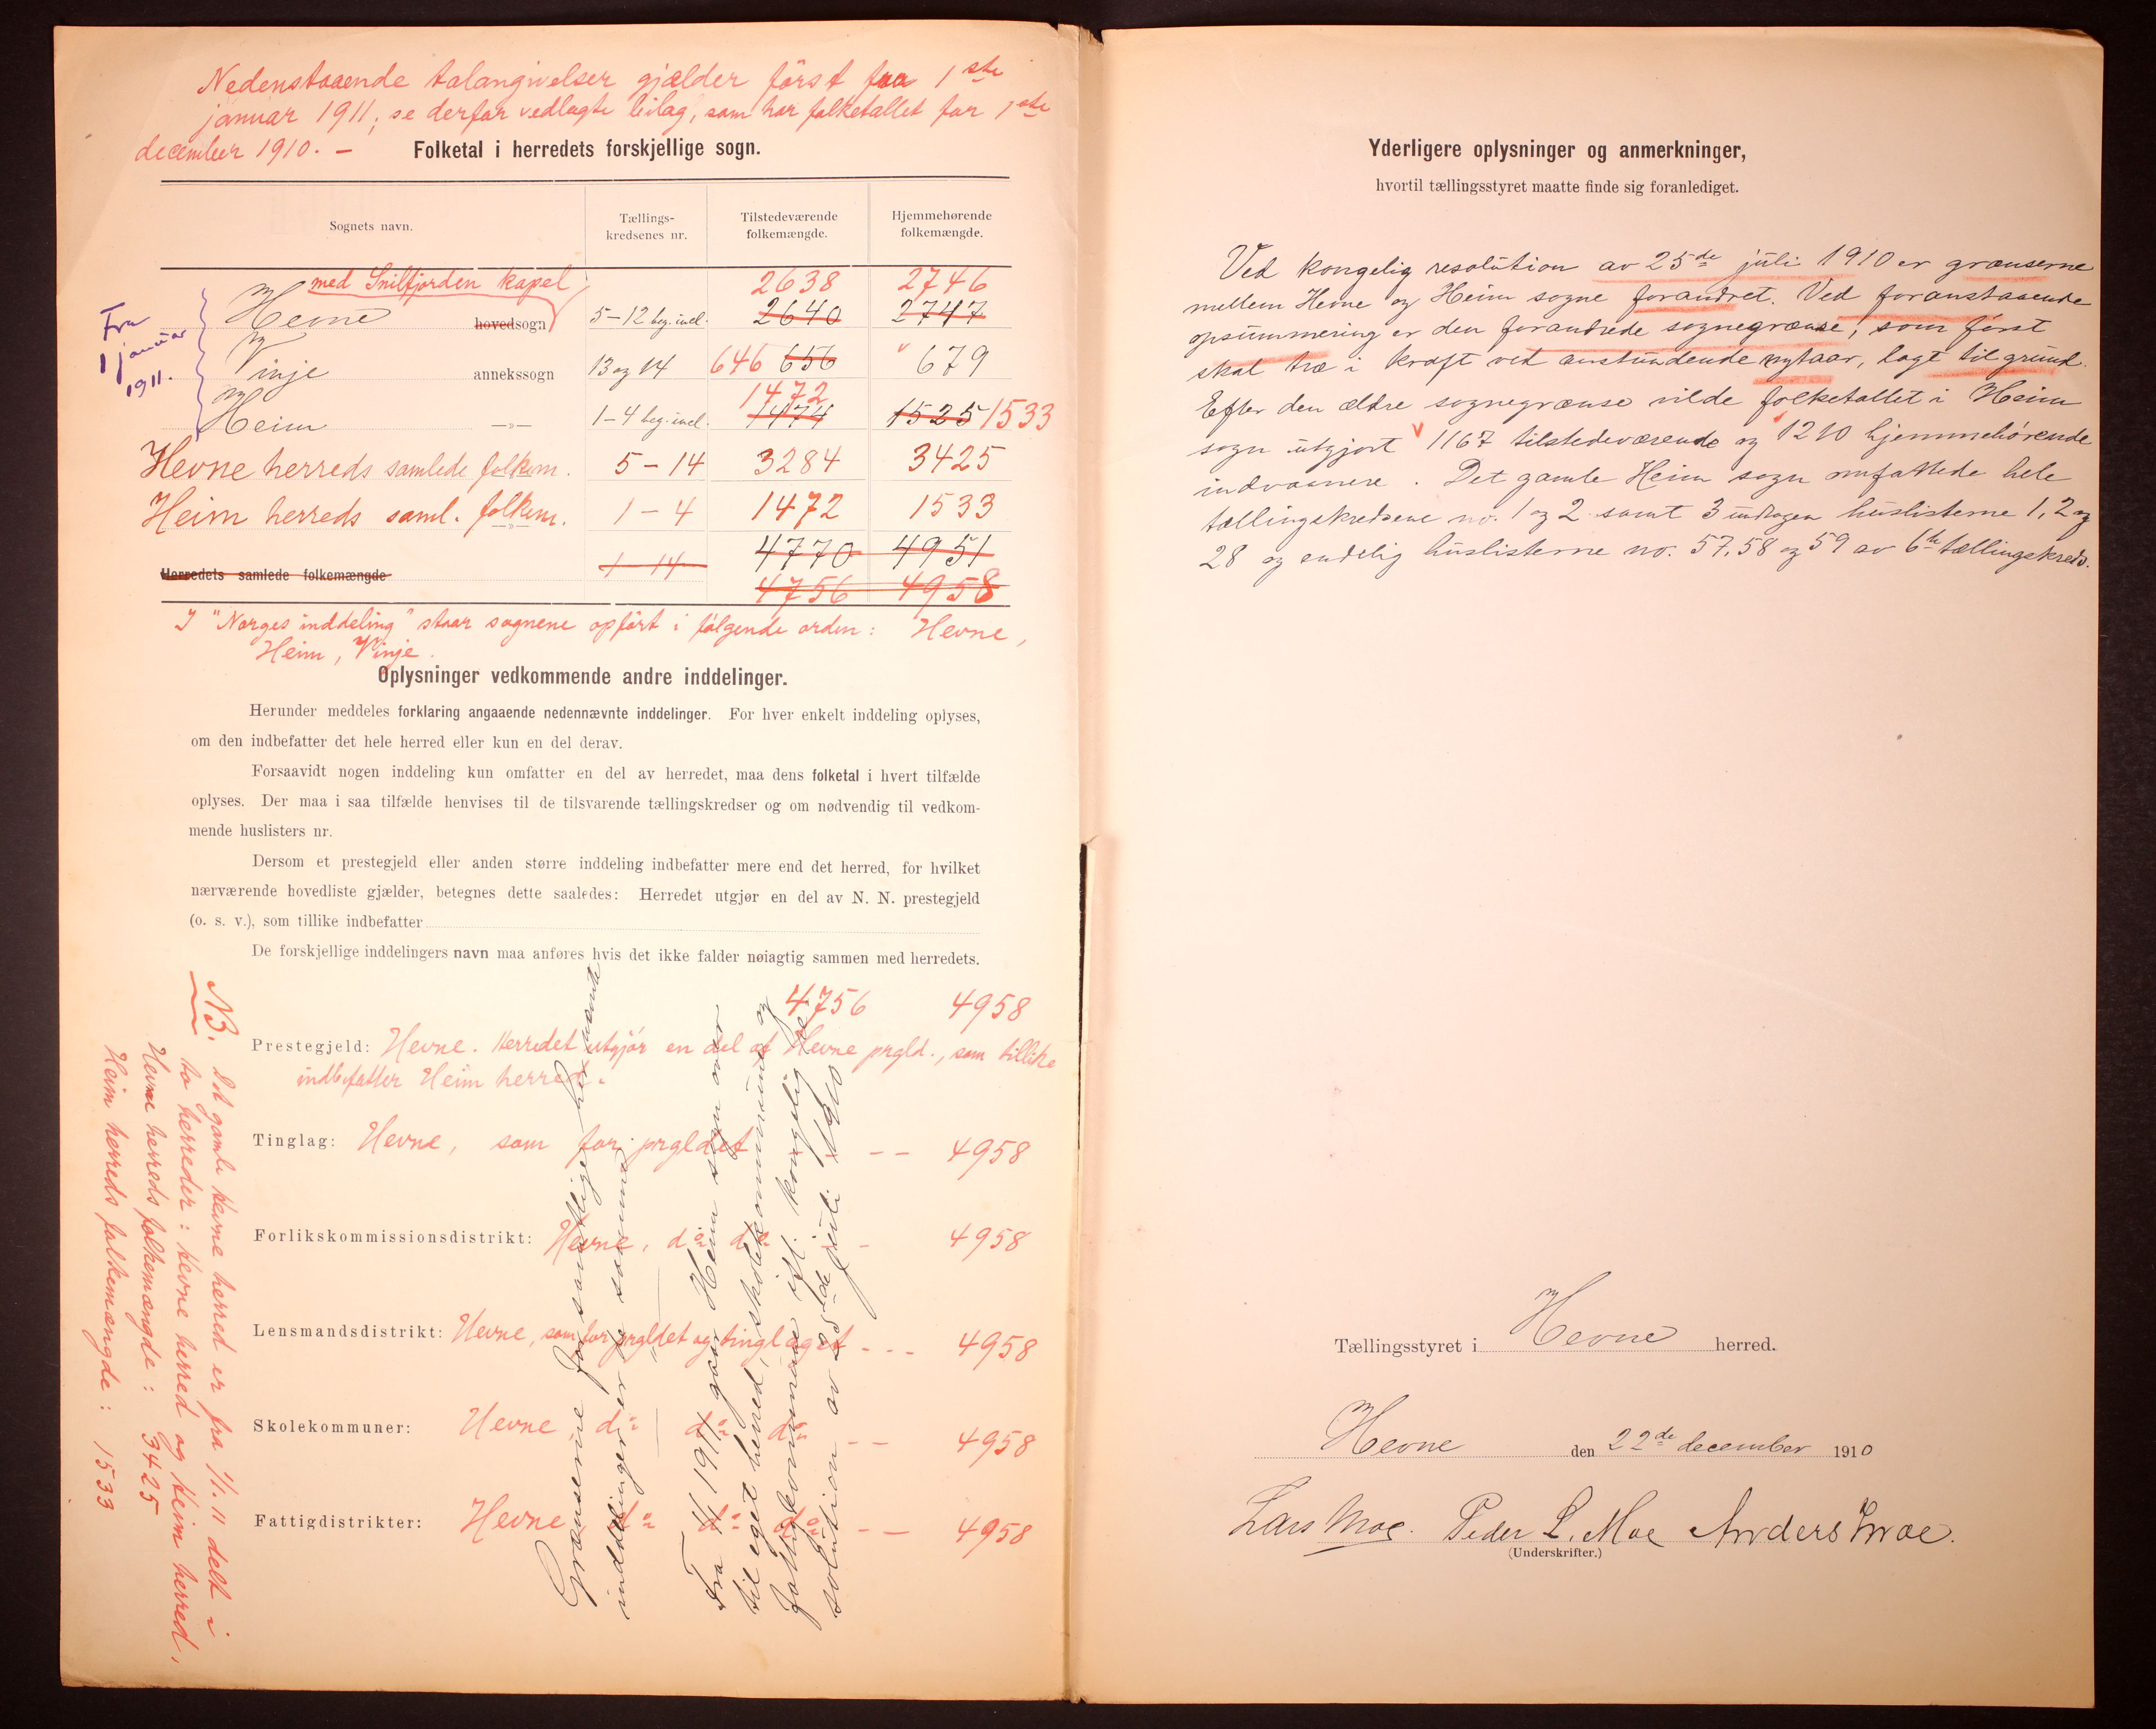 Nedenstaaende talangivelser gjælder först fra 1ste
januar 1911; se derfor vedlagte bilag, som har folketallet for 1ste
december 1910. –
Folketal i herredets forskjellige sogn.
Sognets navn.
Tællings-
kredsenes nr.
Tilstedeværende
folkemængde.
Hjemmehørende
folkemængde.
med Snilfjorden kapel 2638 2746
Hevne hovedsogn 5–12 beg. incl. 2640 2747
Vinje annekssogn 13 og 14 646 656 679
1472
Heim —»— 1–4 beg. incl. 1474 1525 1533
Fra
1 januar
1911.
Hevne herreds samlede folkem. 5–14 3284 3425
Heim herreds saml. folkem. 1–4 1472 1533
4770 4951
Herredets samlede folkemængde 1 14
4756 4958
I "Norges inddeling" staar sognene opført i følgende orden: Hevne,
Heim, Vinje.
Oplysninger vedkommende andre inddelinger.
Herunder meddeles forklaring angaaende nedennævnte inddelinger. For hver enkelt inddeling oplyses,
om den indbefatter det hele herred eller kun en del derav.
Forsaavidt nogen inddeling kun omfatter en del av herredet, maa dens folketal i hvert tilfælde
oplyses. Der maa i saa tilfælde henvises til de tilsvarende tællingskredser og om nødvendig til vedkom-
mende huslisters nr.
Dersom et prestegjeld eller anden større inddeling indbefatter mere end det herred, for hvilket
nærværende hovedliste gjælder, betegnes dette saaledes: Herredet utgjør en del av N. N. prestegjeld
(o. s. v.), som tillike indbefatter
De forskjellige inddelingers navn maa anføres hvis det ikke falder nøiagtig sammen med herredets.
4756 4958
Prestegjeld: Hevne. Herredet utgjör en del af Hevne prgld., som tillike
indbefatter Heim herred.
Tinglag: Hevne, som for prgldet – – 4958
Forlikskommissionsdistrikt: Hevne, do do – 4958
Lensmandsdistrikt: Hevne, som for prgldet og tinglaget – – – 4958
Skolekommuner: Hevne do do do – – 4958
Fattigdistrikter: Hevne do do do – – 4958
Grænserne for samtlige her nævnte
inddelinger er de samme.
Fra 1/1 1911 gaar Heim sogn over
til eget herred, skolekommune og
fattigkommune ifl. kongelig re-
solution av 25de juli 1910
NB. Det gamle Hevne herred er fra 1/1. 11 delt i
to herreder: Hevne herred og Heim herred,
Hevne herreds folkemængde: 3425
Heim herreds folkemængde: 1533
Yderligere oplysninger og anmerkninger,
hvortil tællingsstyret maatte finde sig foranlediget.
Ved kongelig resolution av 25de juli 1910 er grænserne
mellem Hevne og Heim sogne forandret. Ved foranstaaende
opsummering er den forandrede sognegrænse, som først
skal træ i kraft ved anstundende nytaar, lagt til grund.
Efter den ældre sognegrænse vilde folketallet i Heim
sogn utgjort 1167 tilstedeværende og 1210 hjemmehørende
indvaanere. Det gamle Heim sogn omfattede hele
tællingskredsene no. 1 og 2 samt 3 undtagen huslisterne 1, 2 og
28 og endelig huslisterne no. 57, 58 og 59 av 6te tællingskreds.
Tællingsstyret i Hevne herred.
Hevne den 22de december 1910
Lars Moe. Peder L. Moe Anders Moe.
(Underskrifter.)